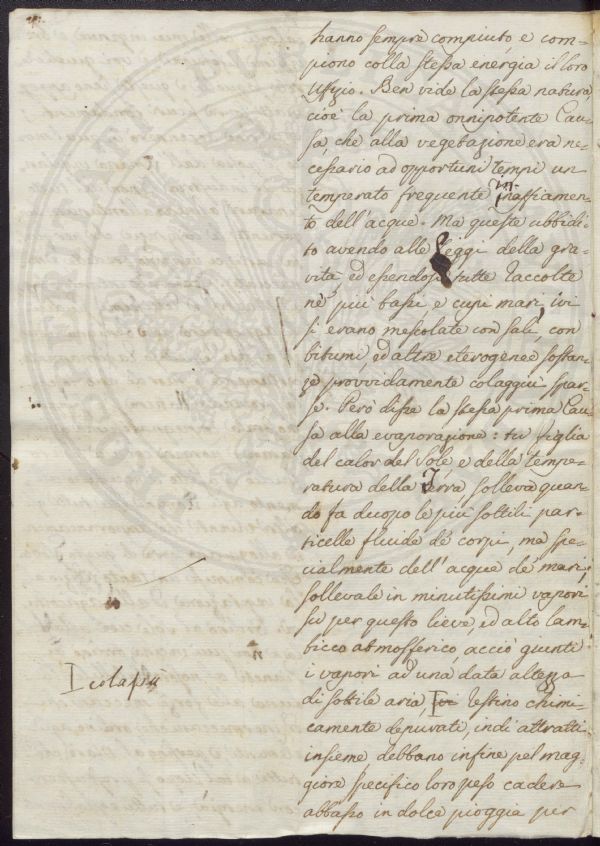 hanno sempre compiuto, e com-
piono colla stessa energia il loro
Uffizio. Ben vide la stessa natura,
cioè la prima onnipotente Cau-
sa, che alla vegetazione era ne-
cessario ad opportuni tempi un
temperato frequente innaffiamen-
to dell'acque. Ma queste ubbidi-
to avendo alle leggi della gra-
vità, ed essendosi tutte raccolte
ne' più bassi e cupi mari, ivi
si erano mescolate con sali, con
bitumi, ed altre eterogenee sostan-
ze provvidamente colaggiù spar-
se. Però disse la stessa prima Cau-
sa alla evaporazione: tu figlia
del calor del Sole e della tempe-
ratura della Terra solleva quan-
do fa duopo le più sottili par-
ticelle fluide de' corpi, ma spe-
cialmente dell'acque de' mari;
sollevale in minutissimi vapori
su per questo lieve, ed alto lam-
bicco atmosferico, acciò giunti
i vapori ad una data altezza
di sottile aria, ivi restino chimi-
camente depurati, indi attratti
insieme debbano infine pel mag-
giore specifico loro peso cadere
abbasso in dolce pioggia per
I colassù